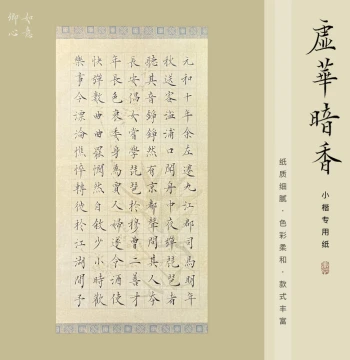 虛華暗香
小楷专用纸
纸质细腻·色彩柔和·款式丰富
元和十年余左遷九江郡司馬明年
秋送客湓浦口聞舟中夜彈琵琶者
聽其音錚錚然有京都聲問其人本
長安倡女嘗學琵琶於穆曹二善才
年長色衰委身爲賈人婦遂令酒使
快彈數曲曲罷憫然自敘少小時歡
樂事今漂淪憔悴轉徙於江湖間予